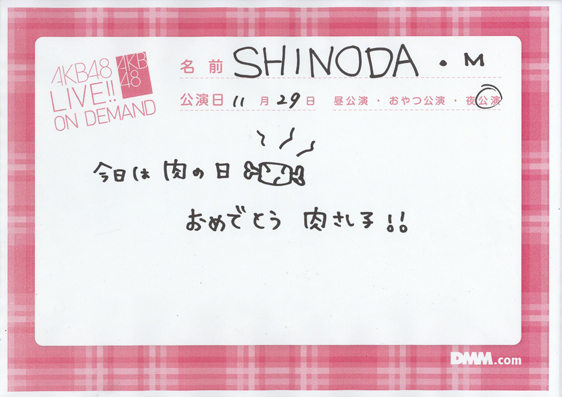 AKB48
LIVE!!
ON DEMAND
AKB
48
名前 SHINODA・M
公演日 11月29日 昼公演・おやつ公演・夜公演
今日は肉の日
おめでとう 肉さし子!!
DMM.com